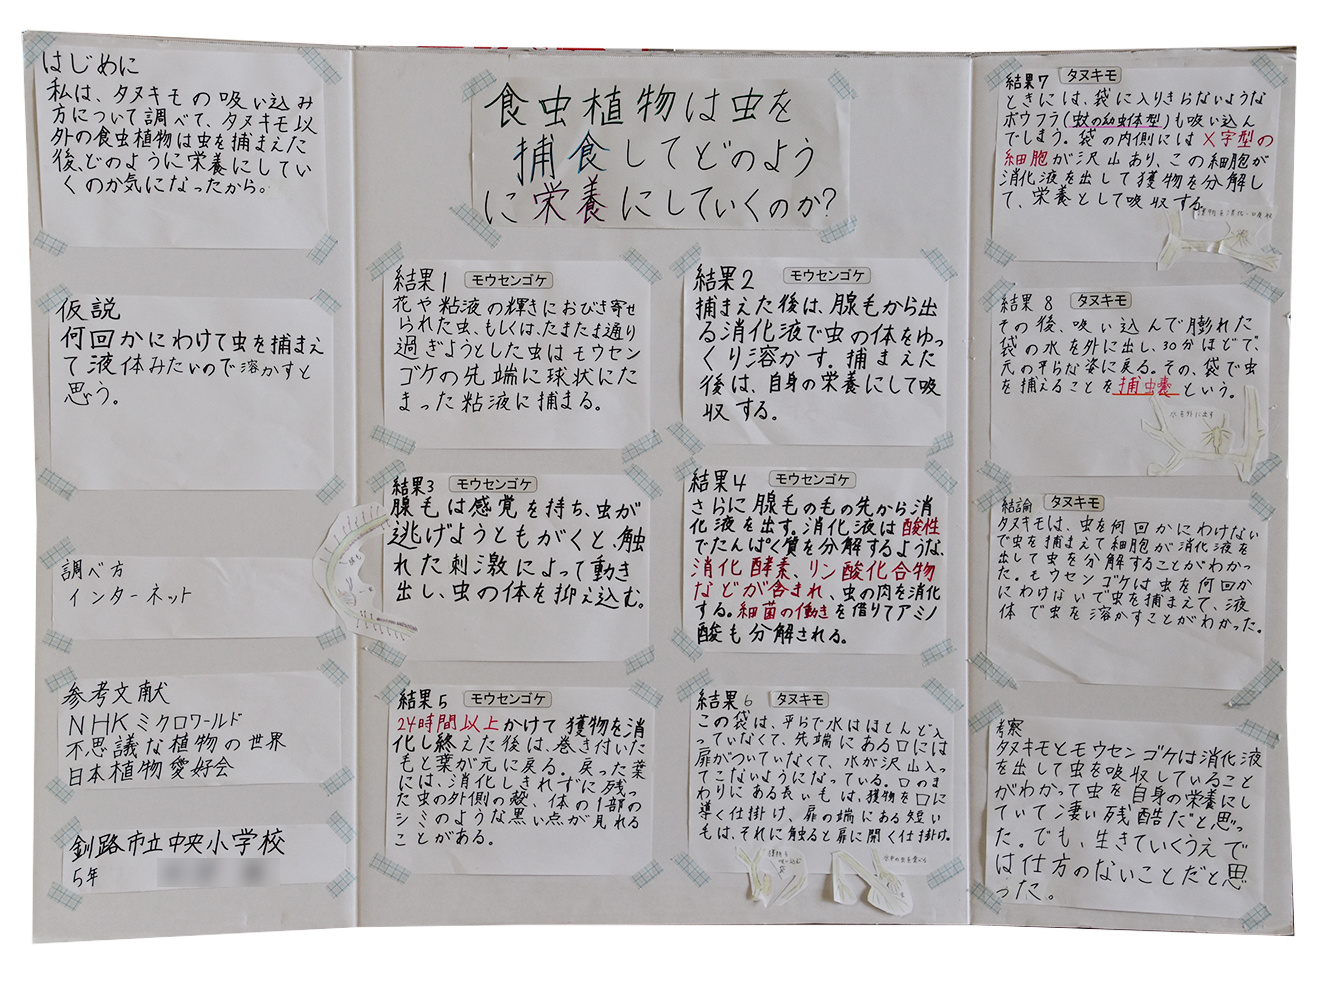 はじめに
私は、タヌキモの吸い込み
方について調べて、タヌキモ以
外の食虫植物は虫を捕まえた
後、どのように栄養にしてい
くのか気になったから。
仮説
何回かにわけて虫を捕まえ
て液体みたいので溶かすと
思う。
調べ方
インターネット
参考文献
NHKミクロワールド
不思議な植物の世界
日本植物愛好会
釧路市立中央小学校
5年
食虫植物は虫を
捕食してどのよう
に栄養にしていくのか?
結果1 モウセンゴケ
花や粘液の輝きにおびき寄せ
られた虫、もしくは、たまたま通り
過ぎようとした虫はモウセン
ゴケの先端に球状にた
まった粘液に捕まる。
結果2 モウセンゴケ
捕まえた後は、腺毛から出
る消化液で虫の体をゆっ
くり溶かす。捕まえた
後は、自身の栄養にして吸
収する。
結果3 モウセンゴケ
腺毛は感覚を持ち、虫が
逃げようともがくと、触
れた刺激によって動き
出し、虫の体を抑え込む。
結果4 モウセンゴケ
さらに腺毛のもの先から消
化液を出す。消化液は酸性
でたんぱく質を分解するような、
消化酵素、リン酸化合物
などが含まれ、虫の肉を消化
する。細菌の働きを借りてアミノ
酸も分解される。
結果5 モウセンゴケ
24時間以上かけて獲物を消
化し終えた後は、巻き付いた
毛と葉が元に戻る。戻った葉
には、消化しきれずに残っ
た虫の外側の殻、体の1部の
シミのような黒い点が見れる
ことがある。
結果6 タヌキモ
この袋は、平らで水はほとんど入
っていなくて、先端にある口には
扉がついていなくて、水が沢山入っ
てこないようになっている。口のま
わりにある長いもは、獲物を口に
導く仕掛け、扉の端にある短い
毛は、それに触ると扉に開く仕掛け。
結果7 タヌキモ
ときには、袋に入りきらないような
ボウフラ(蚊の幼虫体型)も吸い込ん
でしまう。袋の内側にはX字型の
細胞が沢山あり、この細胞が
消化液を出して獲物を分解し
て、栄養として吸収する。
結果8 タヌキモ
その後、吸い込んで膨れた
袋の水を外に出し、30分ほどで、
元の平らな姿に戻る。その、袋で虫
を捕えることを捕虫嚢という。
水を外に出す
結論 タヌキモ
タヌキモは、虫を何回かにわけない
で虫を捕まえて細胞が消化液を
出して虫を分解することがわかっ
た。モウセンゴケは虫を何回か
にわけないで虫を捕まえて、液
体で虫を溶かすことがわかった。
考察
タヌキモとモウセンゴケは消化液
を出して虫を吸収していること
がわかって虫を自身の栄養にし
ていて凄い残酷だと思っ
た。でも、生きていくうえで
は仕方のないことだと思
った。